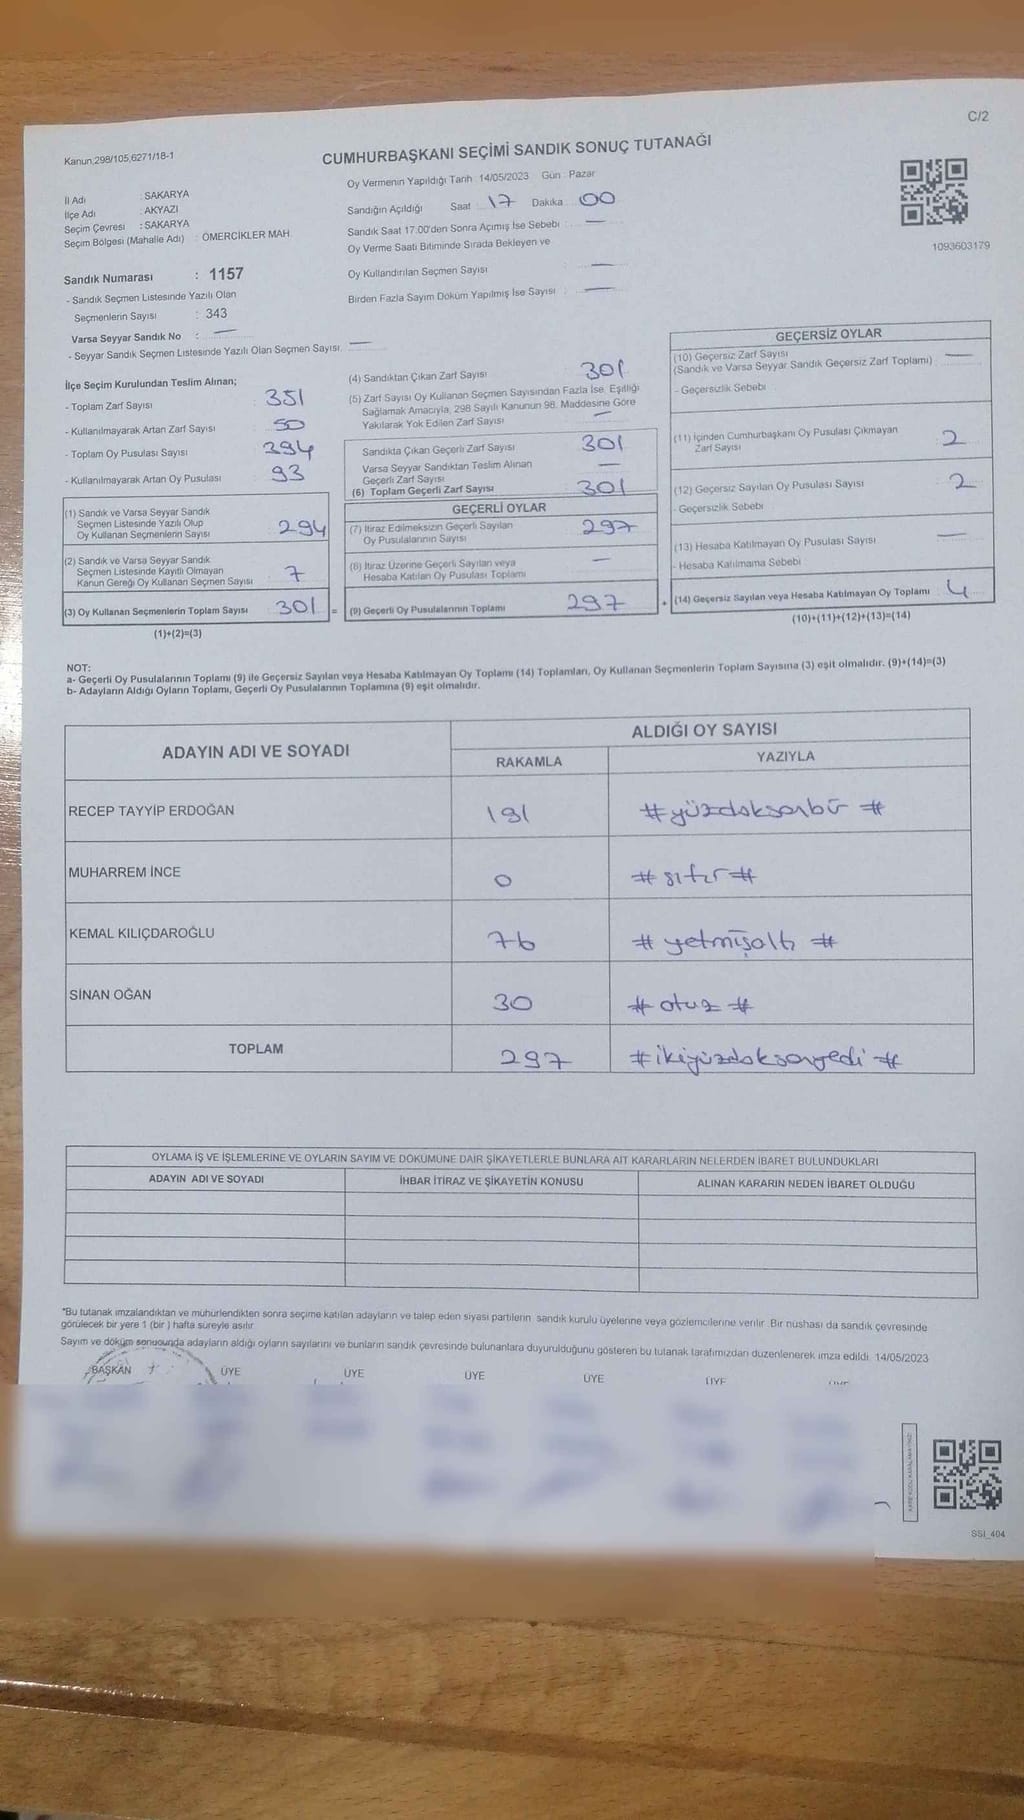 C/2
Kanun;298/105,6271/18-1
CUMHURBAŞKANI SEÇİMİ SANDIK SONUÇ TUTANAĞI
İl Adı : SAKARYA
İlçe Adı : AKYAZI
Seçim Çevresi : SAKARYA
Seçim Bölgesi (Mahalle Adı) : ÖMERCİKLER MAH.
Oy Vermenin Yapıldığı Tarih : 14/05/2023 Gün : Pazar
Sandığın Açıldığı Saat : 17 Dakika : 00
Sandık Saat 17:00'den Sonra Açımış İse Sebebi : —
Oy Verme Saati Bitiminde Sırada Bekleyen ve
Oy Kullandırılan Seçmen Sayısı : —
Birden Fazla Sayım Döküm Yapılmış İse Sayısı : —
1093603179
Sandık Numarası : 1157
- Sandık Seçmen Listesinde Yazılı Olan
Seçmenlerin Sayısı : 343
Varsa Seyyar Sandık No : —
- Seyyar Sandık Seçmen Listesinde Yazılı Olan Seçmen Sayısı: —
İlçe Seçim Kurulundan Teslim Alınan;
- Toplam Zarf Sayısı : 351
- Kullanılmayarak Artan Zarf Sayısı : 50
- Toplam Oy Pusulası Sayısı : 394
- Kullanılmayarak Artan Oy Pusulası : 93
(1) Sandık ve Varsa Seyyar Sandık
Seçmen Listesinde Yazılı Olup
Oy Kullanan Seçmenlerin Sayısı : 294
(2) Sandık ve Varsa Seyyar Sandık
Seçmen Listesinde Kayıtlı Olmayan
Kanun Gereği Oy Kullanan Seçmen Sayısı : 7
(3) Oy Kullanan Seçmenlerin Toplam Sayısı : 301 =
(1)+(2)=(3)
(4) Sandıktan Çıkan Zarf Sayısı : 301
(5) Zarf Sayısı Oy Kullanan Seçmen Sayısından Fazla İse, Eşitliği
Sağlamak Amacıyla, 298 Sayılı Kanunun 98. Maddesine Göre
Yakılarak Yok Edilen Zarf Sayısı : —
Sandıkta Çıkan Geçerli Zarf Sayısı : 301
Varsa Seyyar Sandıktan Teslim Alınan
Geçerli Zarf Sayısı : —
(6) Toplam Geçerli Zarf Sayısı : 301
GEÇERLİ OYLAR
(7) İtiraz Edilmeksizin Geçerli Sayılan
Oy Pusulalarının Sayısı : 297
(8) İtiraz Üzerine Geçerli Sayılan veya
Hesaba Katılan Oy Pusulası Toplamı : —
(9) Geçerli Oy Pusulalarının Toplamı : 297 +
GEÇERSİZ OYLAR
(10) Geçersiz Zarf Sayısı
(Sandık ve Varsa Seyyar Sandık Geçersiz Zarf Toplamı) : —
- Geçersizlik Sebebi :
(11) İçinden Cumhurbaşkanı Oy Pusulası Çıkmayan
Zarf Sayısı : 2
(12) Geçersiz Sayılan Oy Pusulası Sayısı : 2
- Geçersizlik Sebebi :
(13) Hesaba Katılmayan Oy Pusulası Sayısı : —
- Hesaba Katılmama Sebebi :
(14) Geçersiz Sayılan veya Hesaba Katılmayan Oy Toplamı : 4
(10)+(11)+(12)+(13)=(14)
NOT:
a- Geçerli Oy Pusulalarının Toplamı (9) ile Geçersiz Sayılan veya Hesaba Katılmayan Oy Toplamı (14) Toplamları, Oy Kullanan Seçmenlerin Toplam Sayısına (3) eşit olmalıdır. (9)+(14)=(3)
b- Adayların Aldığı Oyların Toplamı, Geçerli Oy Pusulalarının Toplamına (9) eşit olmalıdır.
ADAYIN ADI VE SOYADI
ALDIĞI OY SAYISI
RAKAMLA YAZIYLA
RECEP TAYYİP ERDOĞAN 191 #yüzdoksanbir #
MUHARREM İNCE 0 # sıfır #
KEMAL KILIÇDAROĞLU 76 # yetmişaltı #
SİNAN OĞAN 30 # otuz #
TOPLAM 297 #ikiyüzdoksanyedi #
OYLAMA İŞ VE İŞLEMLERİNE VE OYLARIN SAYIM VE DÖKÜMÜNE DAİR ŞİKAYETLERLE BUNLARA AİT KARARLARIN NELERDEN İBARET BULUNDUKLARI
ADAYIN ADI VE SOYADI İHBAR İTİRAZ VE ŞİKAYETİN KONUSU ALINAN KARARIN NEDEN İBARET OLDUĞU
*Bu tutanak imzalandıktan ve mühürlendikten sonra seçime katılan adayların ve talep eden siyasi partilerin sandık kurulu üyelerine veya gözlemcilerine verilir. Bir nüshası da sandık çevresinde
görülecek bir yere 1 (bir ) hafta süreyle asılır.
Sayım ve döküm sonucunda adayların aldığı oyların sayılarını ve bunların sandık çevresinde bulunanlara duyurulduğunu gösteren bu tutanak tarafımızdan düzenlenerek imza edildi. 14/05/2023
BAŞKAN ÜYE ÜYE ÜYE ÜYE ÜYE
SSI_404